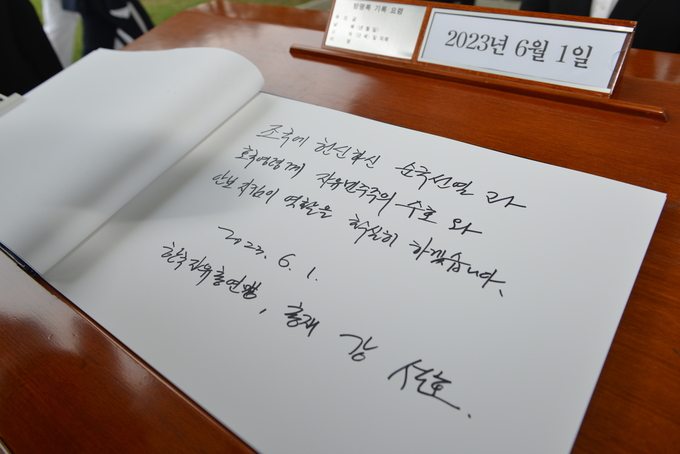 방명록 기록 요령
2023년 6월 1일
조국에 헌신하신 순국선열과
호국영령께 자유민주주의 수호와
안보 지킴이 역할을 확실히 하겠습니다.
2023. 6. 1.
한국자유총연맹, 총재 강석호.